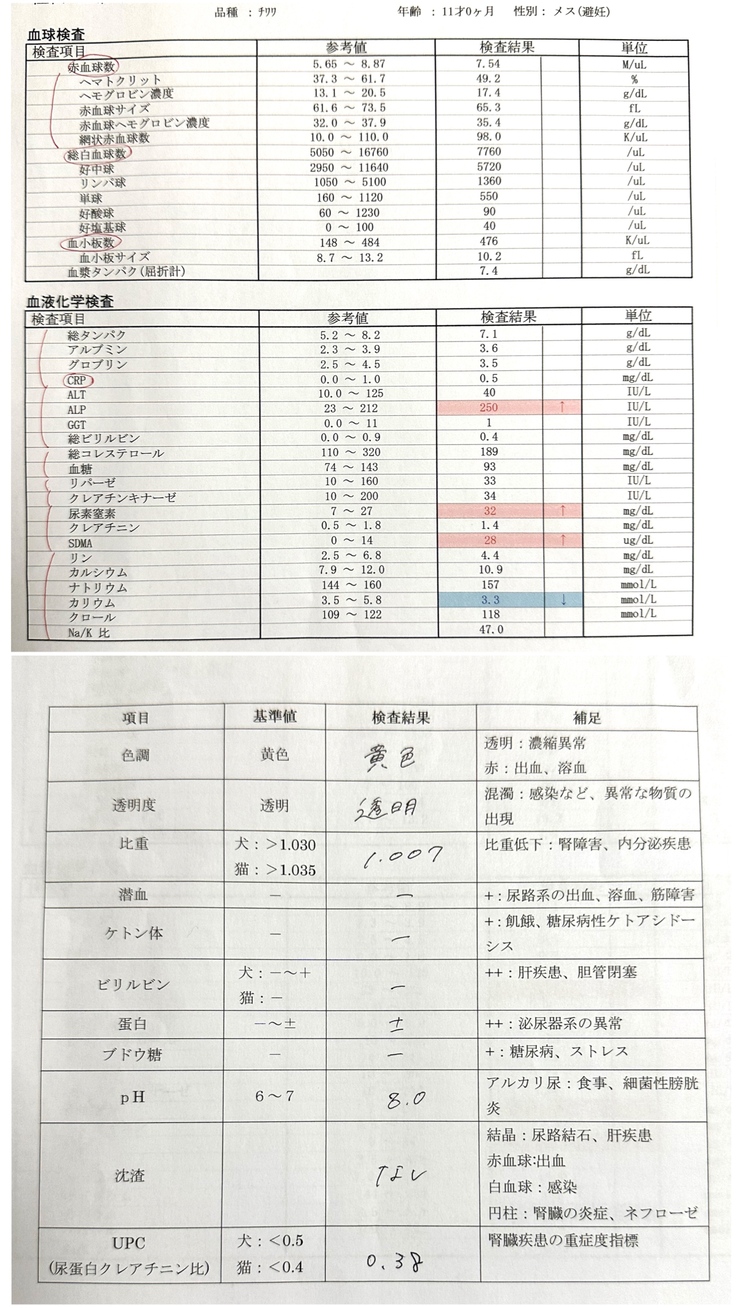 品種 : ﾁﾜﾜ 年齢 : 11才0ヶ月 性別: メス(避妊)
血球検査
検査項目 参考値 検査結果 単位
赤血球数 5.65 ～ 8.87 7.54 M/uL
ヘマトクリット 37.3 ～ 61.7 49.2 %
ヘモグロビン濃度 13.1 ～ 20.5 17.4 g/dL
赤血球サイズ 61.6 ～ 73.5 65.3 fL
赤血球ヘモグロビン濃度 32.0 ～ 37.9 35.4 g/dL
網状赤血球数 10.0 ～ 110.0 98.0 K/uL
総白血球数 5050 ～ 16760 7760 /uL
好中球 2950 ～ 11640 5720 /uL
リンパ球 1050 ～ 5100 1360 /uL
単球 160 ～ 1120 550 /uL
好酸球 60 ～ 1230 90 /uL
好塩基球 0 ～ 100 40 /uL
血小板数 148 ～ 484 476 K/uL
血小板サイズ 8.7 ～ 13.2 10.2 fL
血漿タンパク(屈折計) 7.4 g/dL
血液化学検査
検査項目 参考値 検査結果 単位
総タンパク 5.2 ～ 8.2 7.1 g/dL
アルブミン 2.3 ～ 3.9 3.6 g/dL
グロブリン 2.5 ～ 4.5 3.5 g/dL
CRP 0.0 ～ 1.0 0.5 mg/dL
ALT 10.0 ～ 125 40 IU/L
ALP 23 ～ 212 250 ↑ IU/L
GGT 0.0 ～ 11 1 IU/L
総ビリルビン 0.0 ～ 0.9 0.4 mg/dL
総コレステロール 110 ～ 320 189 mg/dL
血糖 74 ～ 143 93 mg/dL
リパーゼ 10 ～ 160 33 IU/L
クレアチンキナーゼ 10 ～ 200 34 IU/L
尿素窒素 7 ～ 27 32 ↑ mg/dL
クレアチニン 0.5 ～ 1.8 1.4 mg/dL
SDMA 0 ～ 14 28 ↑ ug/dL
リン 2.5 ～ 6.8 4.4 mg/dL
カルシウム 7.9 ～ 12.0 10.9 mg/dL
ナトリウム 144 ～ 160 157 mmol/L
カリウム 3.5 ～ 5.8 3.3 ↓ mmol/L
クロール 109 ～ 122 118 mmol/L
Na/K 比 47.0
項目 基準値 検査結果 補足
色調 黄色 黄色 透明：濃縮異常
赤：出血、溶血
透明度 透明 透明 混濁：感染など、異常な物質の
出現
比重 犬：>1.030 1.007 比重低下：腎障害、内分泌疾患
猫：>1.035
潜血 － － +：尿路系の出血、溶血、筋障害
ケトン体 － － +：飢餓、糖尿病性ケトアシドー
シス
ビリルビン 犬：－～＋ － ++：肝疾患、胆管閉塞
猫：－
蛋白 －～± ± ++：泌尿器系の異常
ブドウ糖 － － +：糖尿病、ストレス
pH 6～7 8.0 アルカリ尿：食事、細菌性膀胱
炎
沈渣 なし 結晶：尿路結石、肝疾患
赤血球:出血
白血球：感染
円柱：腎臓の炎症、ネフローゼ
UPC 犬：<0.5 0.38 腎臓疾患の重症度指標
(尿蛋白クレアチニン比) 猫：<0.4